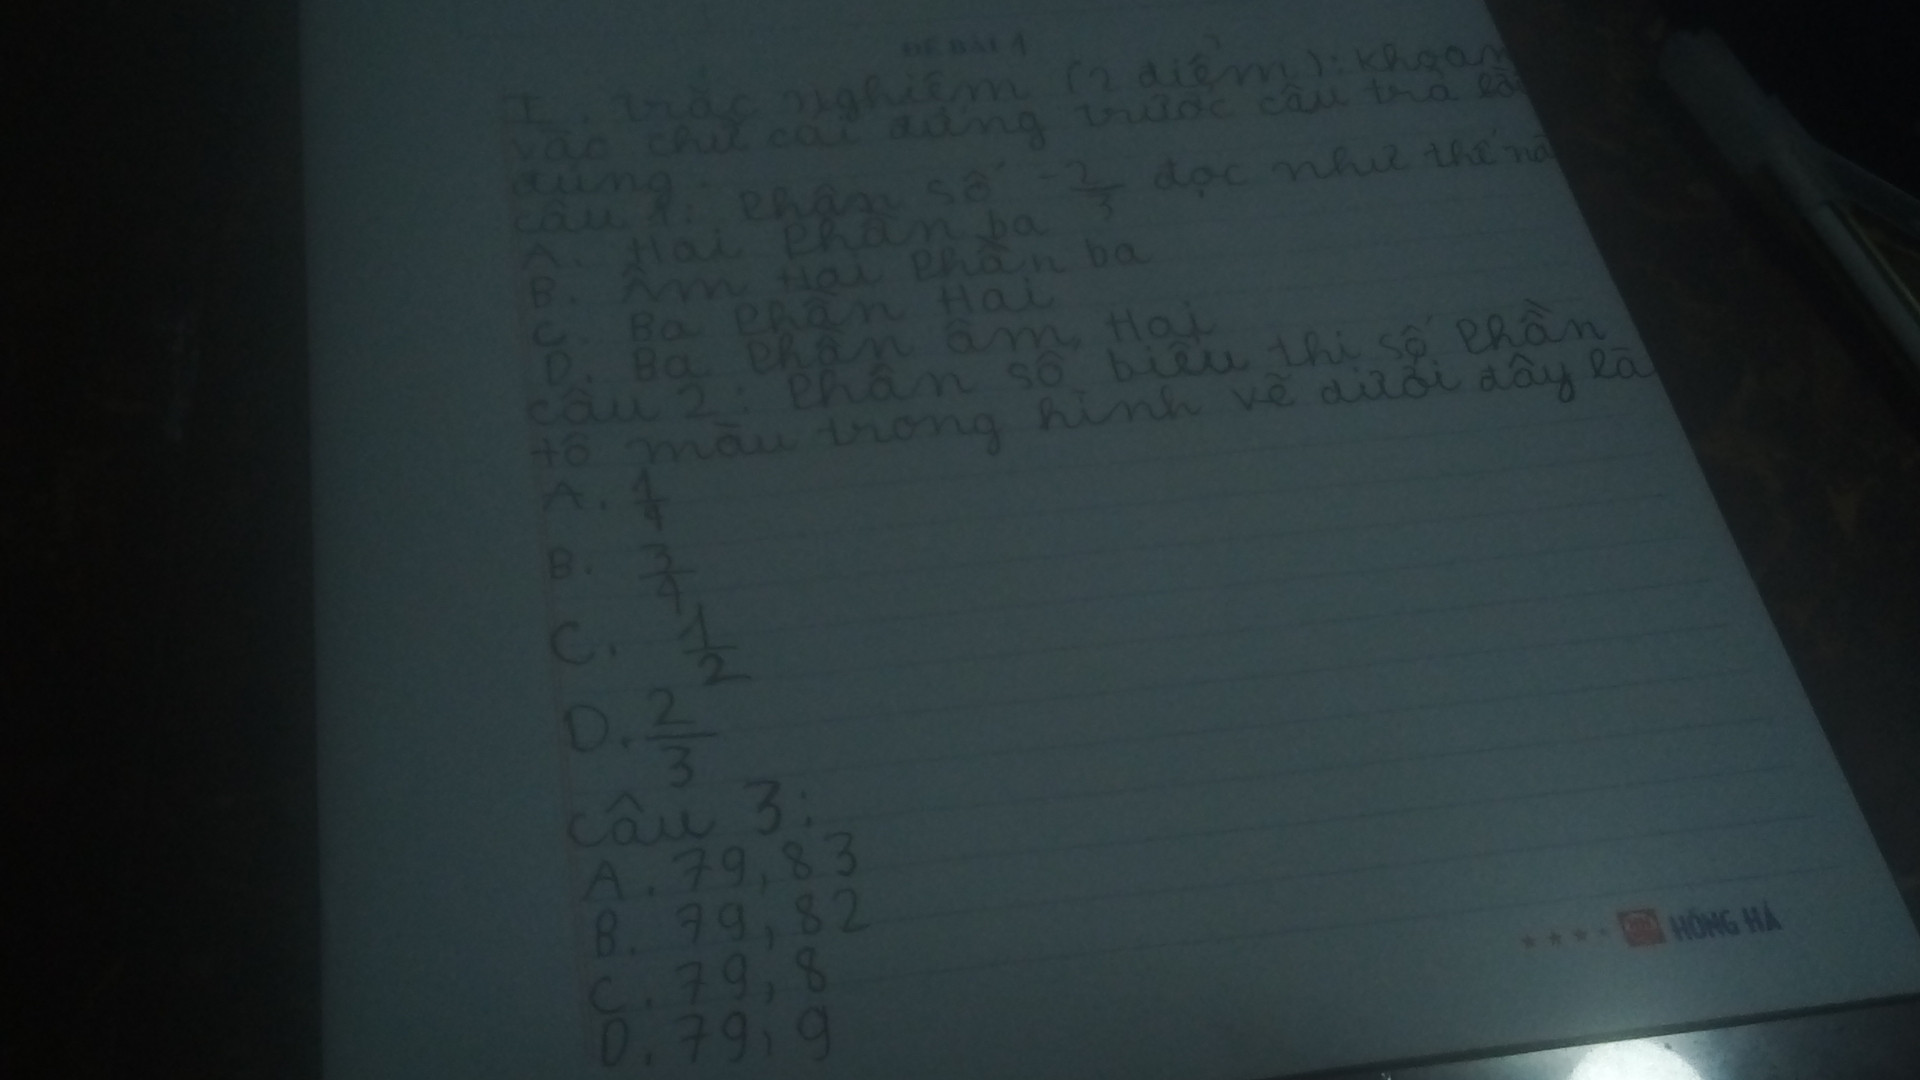 ĐỀ BÀI 1
I. trắc nghiệm (2 điểm): Khoan
vào chữ cái đứng trước câu trả lời
đúng.
câu 1: Phân số -2/3 đọc như thế nà
A. Hai Phần ba
B. Âm Hai Phần ba
C. Ba Phần Hai
D. Ba Phần âm Hai
câu 2: Phân số biểu thị số Phần
tô màu trong hình vẽ dưới đây là
A. 1/4
B. 3/4
C. 1/2
D. 2/3
câu 3:
A. 79,83
B. 79,82
C. 79,8
D. 79,9
HỒNG HÀ